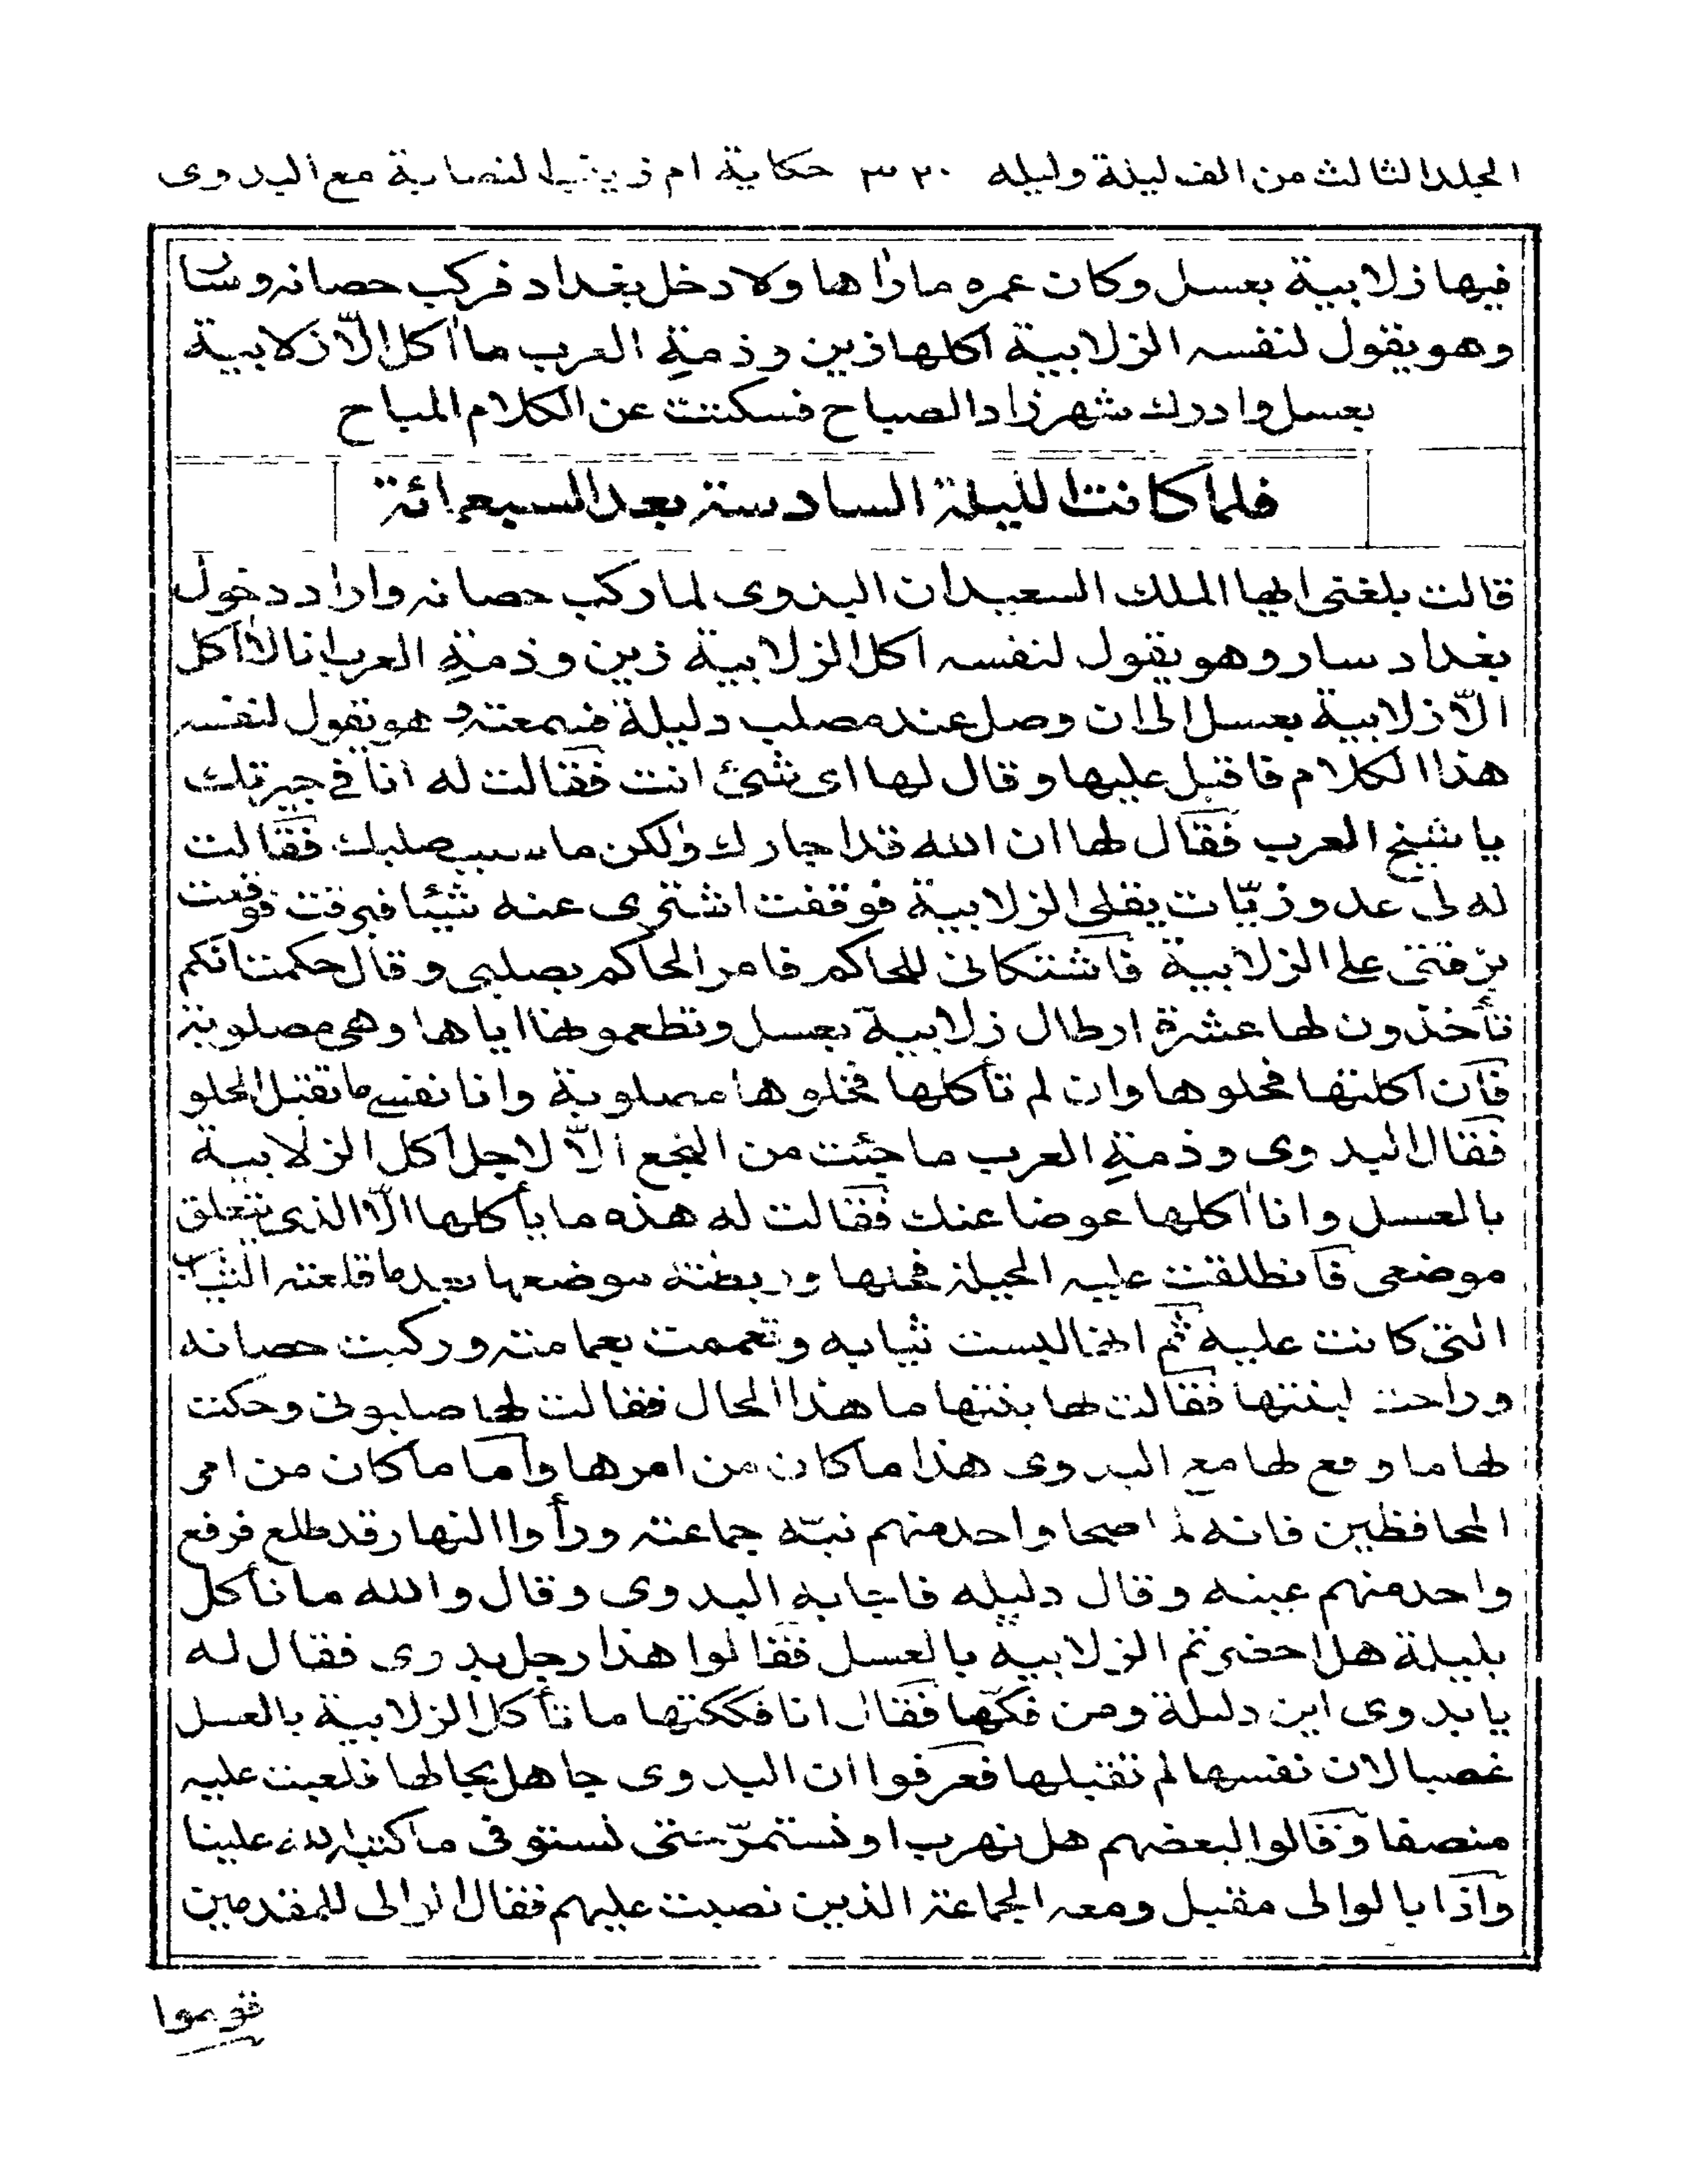 المجلد الثالث من الف ليلة وليله ٣٢٠ حكاية ام زينب النصابة مع البدوى
فيها زلابية بعسل وكان عمره ما راٰها ولا دخل بغداد فركب حصانه وسار
وهو يقول لنفسه الزلابية اكلها زين وذمةِ العرب ما اٰكل الّا زلابية
بعسل وادرك شهرزاد الصباح فسكتت عن الكلام المباح
فلما كانت الليلة السادسة بعد السبعمائة
قالت بلغنى ايها الملك السعيد ان البدوى لما ركب حصانه واراد دخول
بغداد سار وهو يقول لنفسه اكل الزلابية زين وذمةِ العرب انا لا اٰكل
الّا زلابية بعسل الى ان وصل عند مصلب دليلة فسمعته وهو يقول لنفسه
هذا الكلام فاقبل عليها وقال لها اى شئ انت فقالت له انا فى جيرتك
يا شيخ العرب فقال لها ان الله قد اجارك ولكن ما سبب صلبك فقالت
له لى عدو زيّات يقلى الزلابية فوقفت اشترى عنه شيئا فبزقت فوقعت
بزقتى على الزلابية فاشتكانى للحاكم فامر الحاكم بصلبى وقال حكمت انكم
تأخذون لها عشرة ارطال زلابية بعسل وتطعموها اياها وهى مصلوبة
فان اكلتها فحلوها وان لم تأكلها فخلوها مصلوبة وانا نفسى ما تقبل الحلو
فقال البدوى وذمةِ العرب ما جئت من النجع الّا لاجل اكل الزلابية
بالعسل وانا اٰكلها عوضا عنك فقالت له هذه ما يأكلها الّا الذى يتعلق
موضعى فانطلقت عليه الحيلة فحلها وربطته موضعها بعد ما قلعته الثياب
التى كانت عليه ثم انها لبست ثيابه وتعممت بعمامته وركبت حصانه
وراحت لبنتها فقالت لها بنتها ما هذا الحال فقالت لها صلبونى وحكت
لها ما وقع لها مع البدوى هذا ما كان من امرها واما ما كان من امر
المحافظين فانه لما صحا واحد منهم نبّه جماعته ورأوا النهار قد طلع فرفع
واحد منهم عينه وقال دليله فاجابه البدوى وقال والله ما نأكل
بليلة هل احضرتم الزلابية بالعسل فقالوا هذا رجل بدوى فقال له
يا بدوى اين دليلة ومن فكّها فقال انا فككتها ما تأكل الزلابية بالعسل
غصبا لان نفسها لم تقبلها فعرفوا ان البدوى جاهل بحالها فلعبت عليه
منصفا وقالوا لبعضهم هل نهرب او نستمرّ حتى نستوفى ما كتب الله علينا
واذا بالوالى مقبل ومعه الجماعة الذين نصبت عليهم فقال الوالى للمقدمين
قوموا